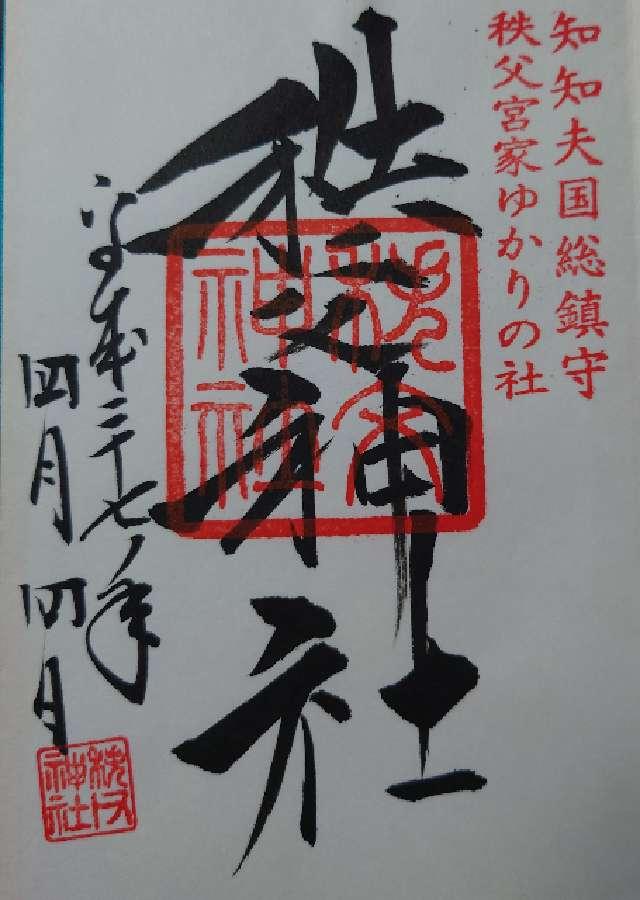 知知夫国総鎮守
秩父宮家ゆかりの社
秩父神社
秩父神社
平成二十七年
四月四日
秩父神社